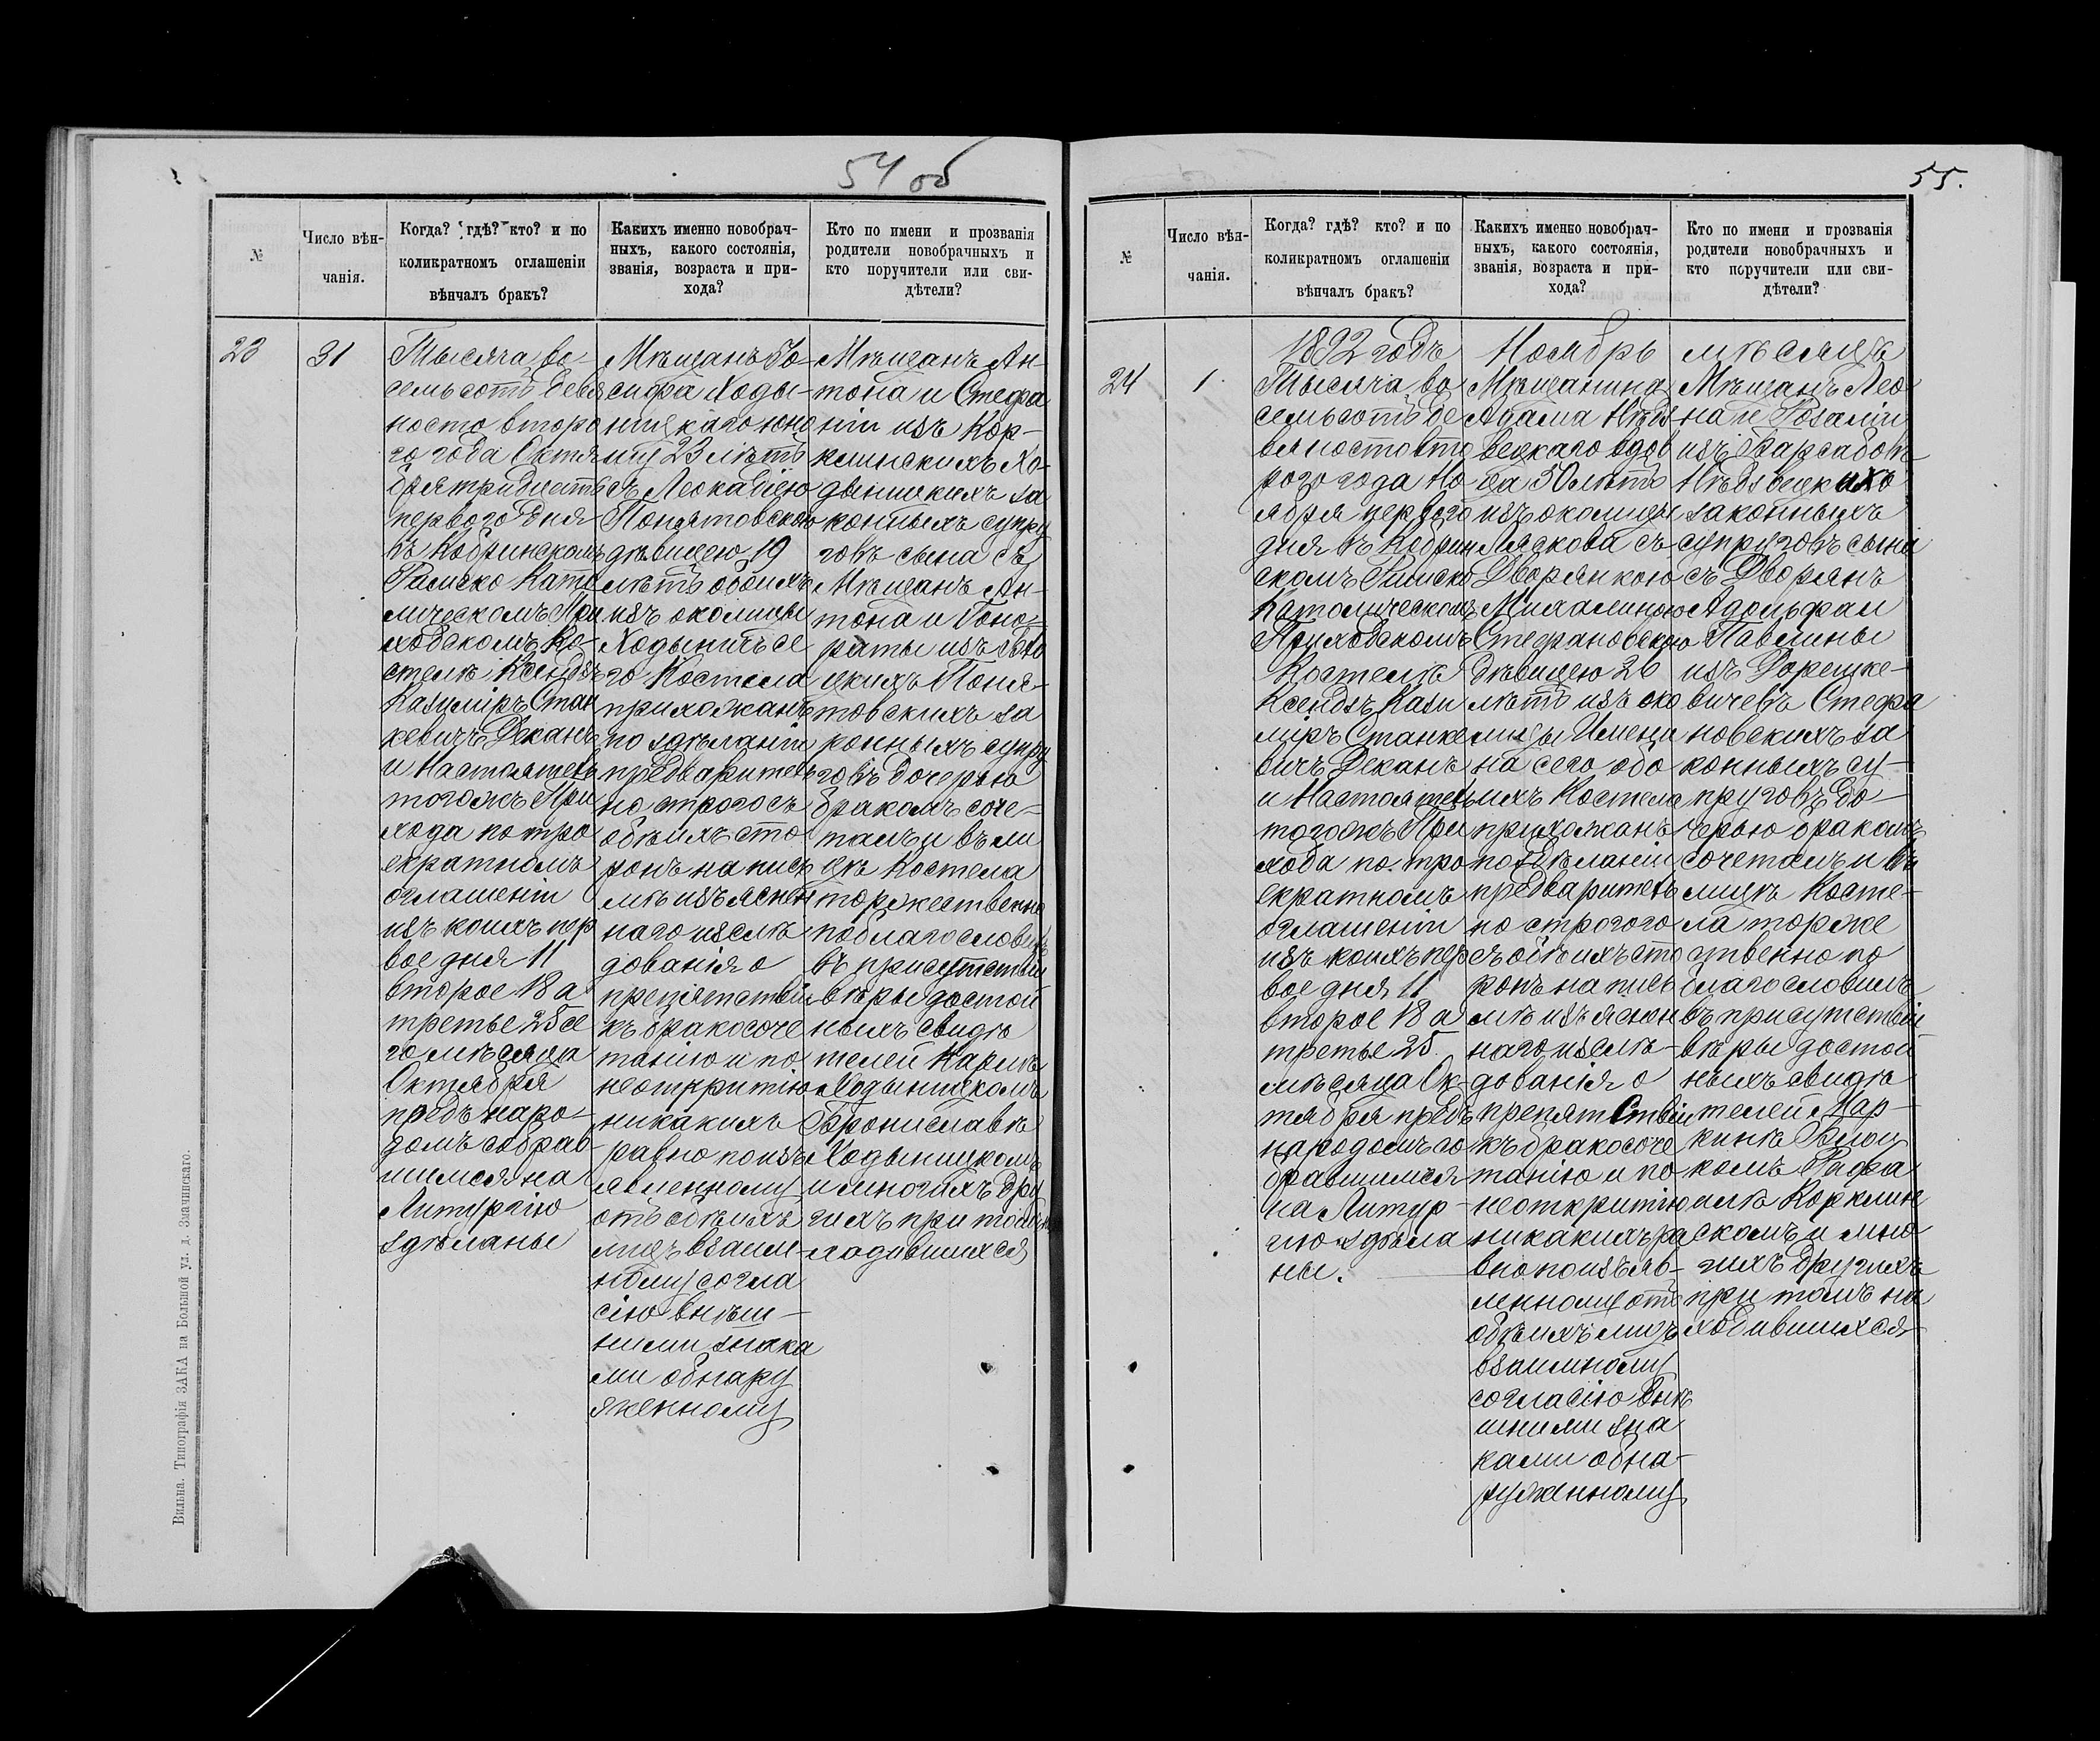 54 об
№
Число вѣн-
чанія.
Когда? гдѣ? кто? и по
коликратномъ оглашеніи
вѣнчалъ бракъ?
Какихъ именно новобрач-
ныхъ, какого состоянія,
званія, возраста и при-
хода?
Кто по имени и прозванія
родители новобрачныхъ и
кто поручители или сви-
дѣтели?
23
31
Тысяча во
семьсотъ девя
носто второ
го года Октя
бря тридцать
перваго дня
въ Кобринскомъ
Римско Като
лическомъ При
ходскомъ Ко-
стелѣ Ксендзъ
Казиміръ Стан
кевичъ Деканъ
и Настоятель
тогожъ При
хода по тро
екратномъ
оглашеніи
изъ коихъ пер
вое дня 11
второе 18 а
третье 25 се
го мѣсяца
Октября
предъ наро
домъ собрав
шимся на
Литургію
здѣланы
Мѣщанъ Іо-
сифа Ходы-
ницкаго юно
шу 23 лѣтъ
съ Леокадіею
Понятовскою
дѣвицею 19
лѣтъ обоихъ
изъ околицы
Ходыничъ се
го Костела
прихожанъ
по здѣланіи
предваритель
но строго съ
обѣихъ сто
ронъ на пись
мѣ изъяснен
наго изслѣ
дованія о
препятствіи
къ бракосоче
танію и по
неоткритію
никакихъ
равно по изъ
явленному
отъ обѣихъ
лицъ взаим
ному согла
сію внѣш-
ними знака
ми обнару
женному
Мѣщанъ Ан-
тона и Стефа
ніи изъ Кор-
клинскихъ Хо-
дыницкихъ за
конныхъ супру
говъ сына съ
Мѣщанъ Ан-
тона и Гоно-
раты изъ
Поня-
товскихъ за
конныхъ супру
говъ дочерью
бракомъ соче-
талъ и въ ли
цѣ Костела
торжественно
поблагословилъ
въ присутствіи
вѣры достой
ныхъ свидѣ
телей Карлѣ
Ходыницкомъ
Брониславѣ
Ходыницкомъ
и многихъ дру
гихъ при томъ на
ходившихся
Вильна. Типографія ЗАКА на Большой ул. д. Змачинскаго.
55.
№
Число вѣн-
чанія.
Когда? гдѣ? кто? и по
коликратномъ оглашеніи
вѣнчалъ бракъ?
Какихъ именно новобрач-
ныхъ, какого состоянія,
званія, возраста и при-
хода?
Кто по имени и прозванія
родители новобрачныхъ и
кто поручители или сви-
дѣтели?
1892 годъ Ноябрь мѣсяцъ
24
1.
Тысяча во
семьсотъ де
вяносто вто
рого года Но
ября перваго
дня въ Кобрин
скомъ Римско
Католическомъ
Приходскомъ
Костелѣ
Ксендзъ Кази
міръ Станке
вичъ Деканъ
и Настоятель
тогожъ При
хода по тро
екратномъ
оглашеніи
изъ коихъ пер
вое дня 11
второе 18 а
третье 25
мѣсяца Ок-
тября предъ
народомъ со
бравшимся
на Литур-
гію здѣла
ны.
Мѣщанина
Адама Нѣдз
вецкаго вдов
ца 30 лѣтъ
изъ околицы
Ляскова съ
Дворянкою
Михалиною
Стефановскою
дѣвицею 26
лѣтъ изъ око
лицы Имени
на сего обо
ихъ Костела
прихожанъ
по здѣланіи
предваритель
но строгого
съ обѣихъ сто
ронъ на пись
мѣ изъяснен
наго изслѣ-
дованія о
препятствіи
къ бракосоче
танію и по
неоткритію
никакихъ ра
вно по изъяв-
ленному отъ
обѣихъ лицъ
взаимному
согласію внѣ
шними зна
ками обна-
руженному
Мѣщанъ Лео
на и Розаліи
изъ
Нѣдзвецкихъ
законныхъ
супруговъ сына
съ Дворянъ
Адольфа и
Павлины
изъ Дорешке-
вичевъ Стефа
новскихъ за
конныхъ су-
пруговъ до-
черью бракомъ
сочеталъ и въ
лицѣ Косте-
ла торже
ственно по
благословилъ
въ присутствіи
вѣры достой
ныхъ свидѣ
телей Мар-
кинѣ
комъ Рафа
илѣ Корклин
скомъ и мно
гихъ другихъ
при томъ на
ходившихся